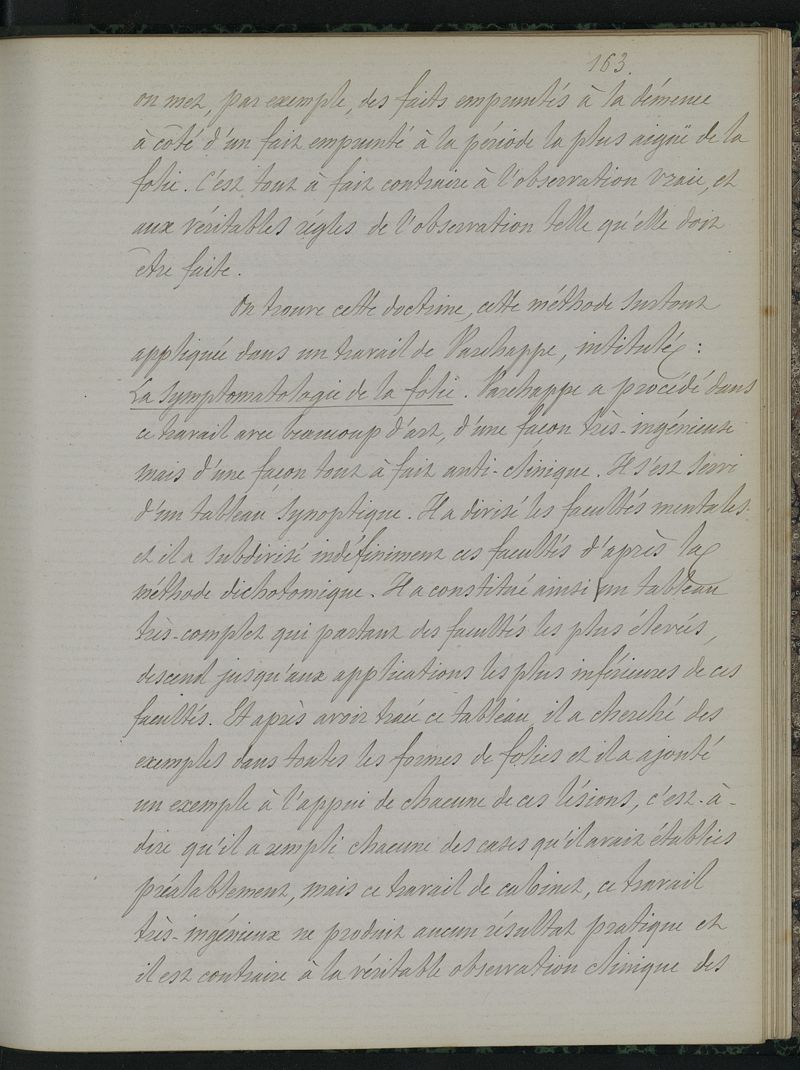 163.
on met, par exemple, des faits empruntés à la démence
à côté d'un fait emprunté à la période la plus aiguë de la
folie. C'est tout à fait contraire à l'observation vraie, et
aux véritables règles de l'observation telle qu'elle doit
être faite.
On trouve cette doctrine, cette méthode surtout
appliquée dans un travail de Parchappe, intitulé :
La Symptomatologie de la folie. Parchappe a procédé dans
ce travail avec beaucoup d'art, d'une façon très-ingénieuse
mais d'une façon tout à fait anti-clinique. Il s'est servi
d'un tableau synoptique. Il a divisé les facultés mentales
et il a subdivisé indéfiniment ces facultés d'après la
méthode dichotomique. Il a constitué ainsi un tableau
très-complet qui partant des facultés les plus élevées,
descend jusqu'aux applications les plus inférieures de ces
facultés. Et après avoir tracé ce tableau, il a cherché des
exemples dans toutes les formes de folies et il a ajouté
un exemple à l'appui de chacune de ces lésions, c'est-à-
dire qu'il a rempli chacune des cases qu'il avait établies
préalablement, mais ce travail de cabinet, ce travail
très-ingénieux ne produit aucun résultat pratique et
il est contraire à la véritable observation clinique des